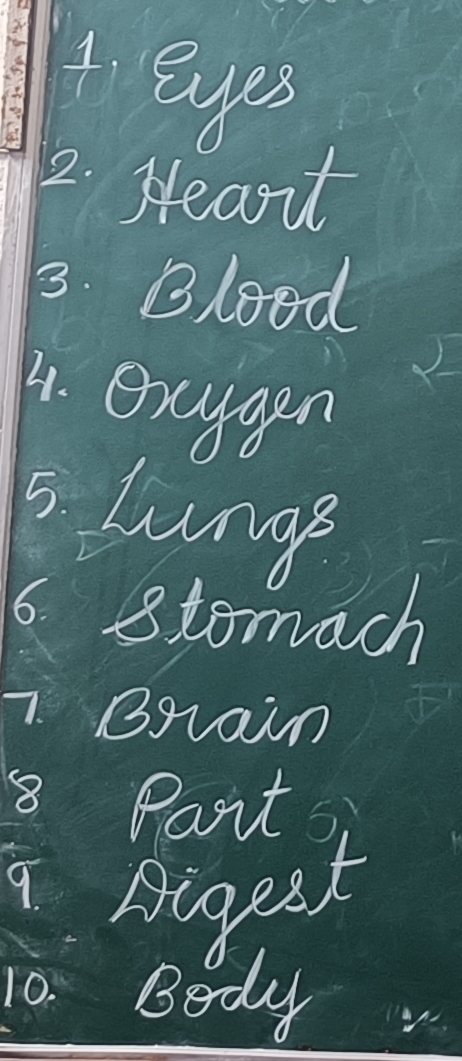 1. Eyes
2. Heart
3. Blood
4. Oxygen
5. Lungs
6. Stomach
7. Brain
8 Part
9. Digest
10. Body